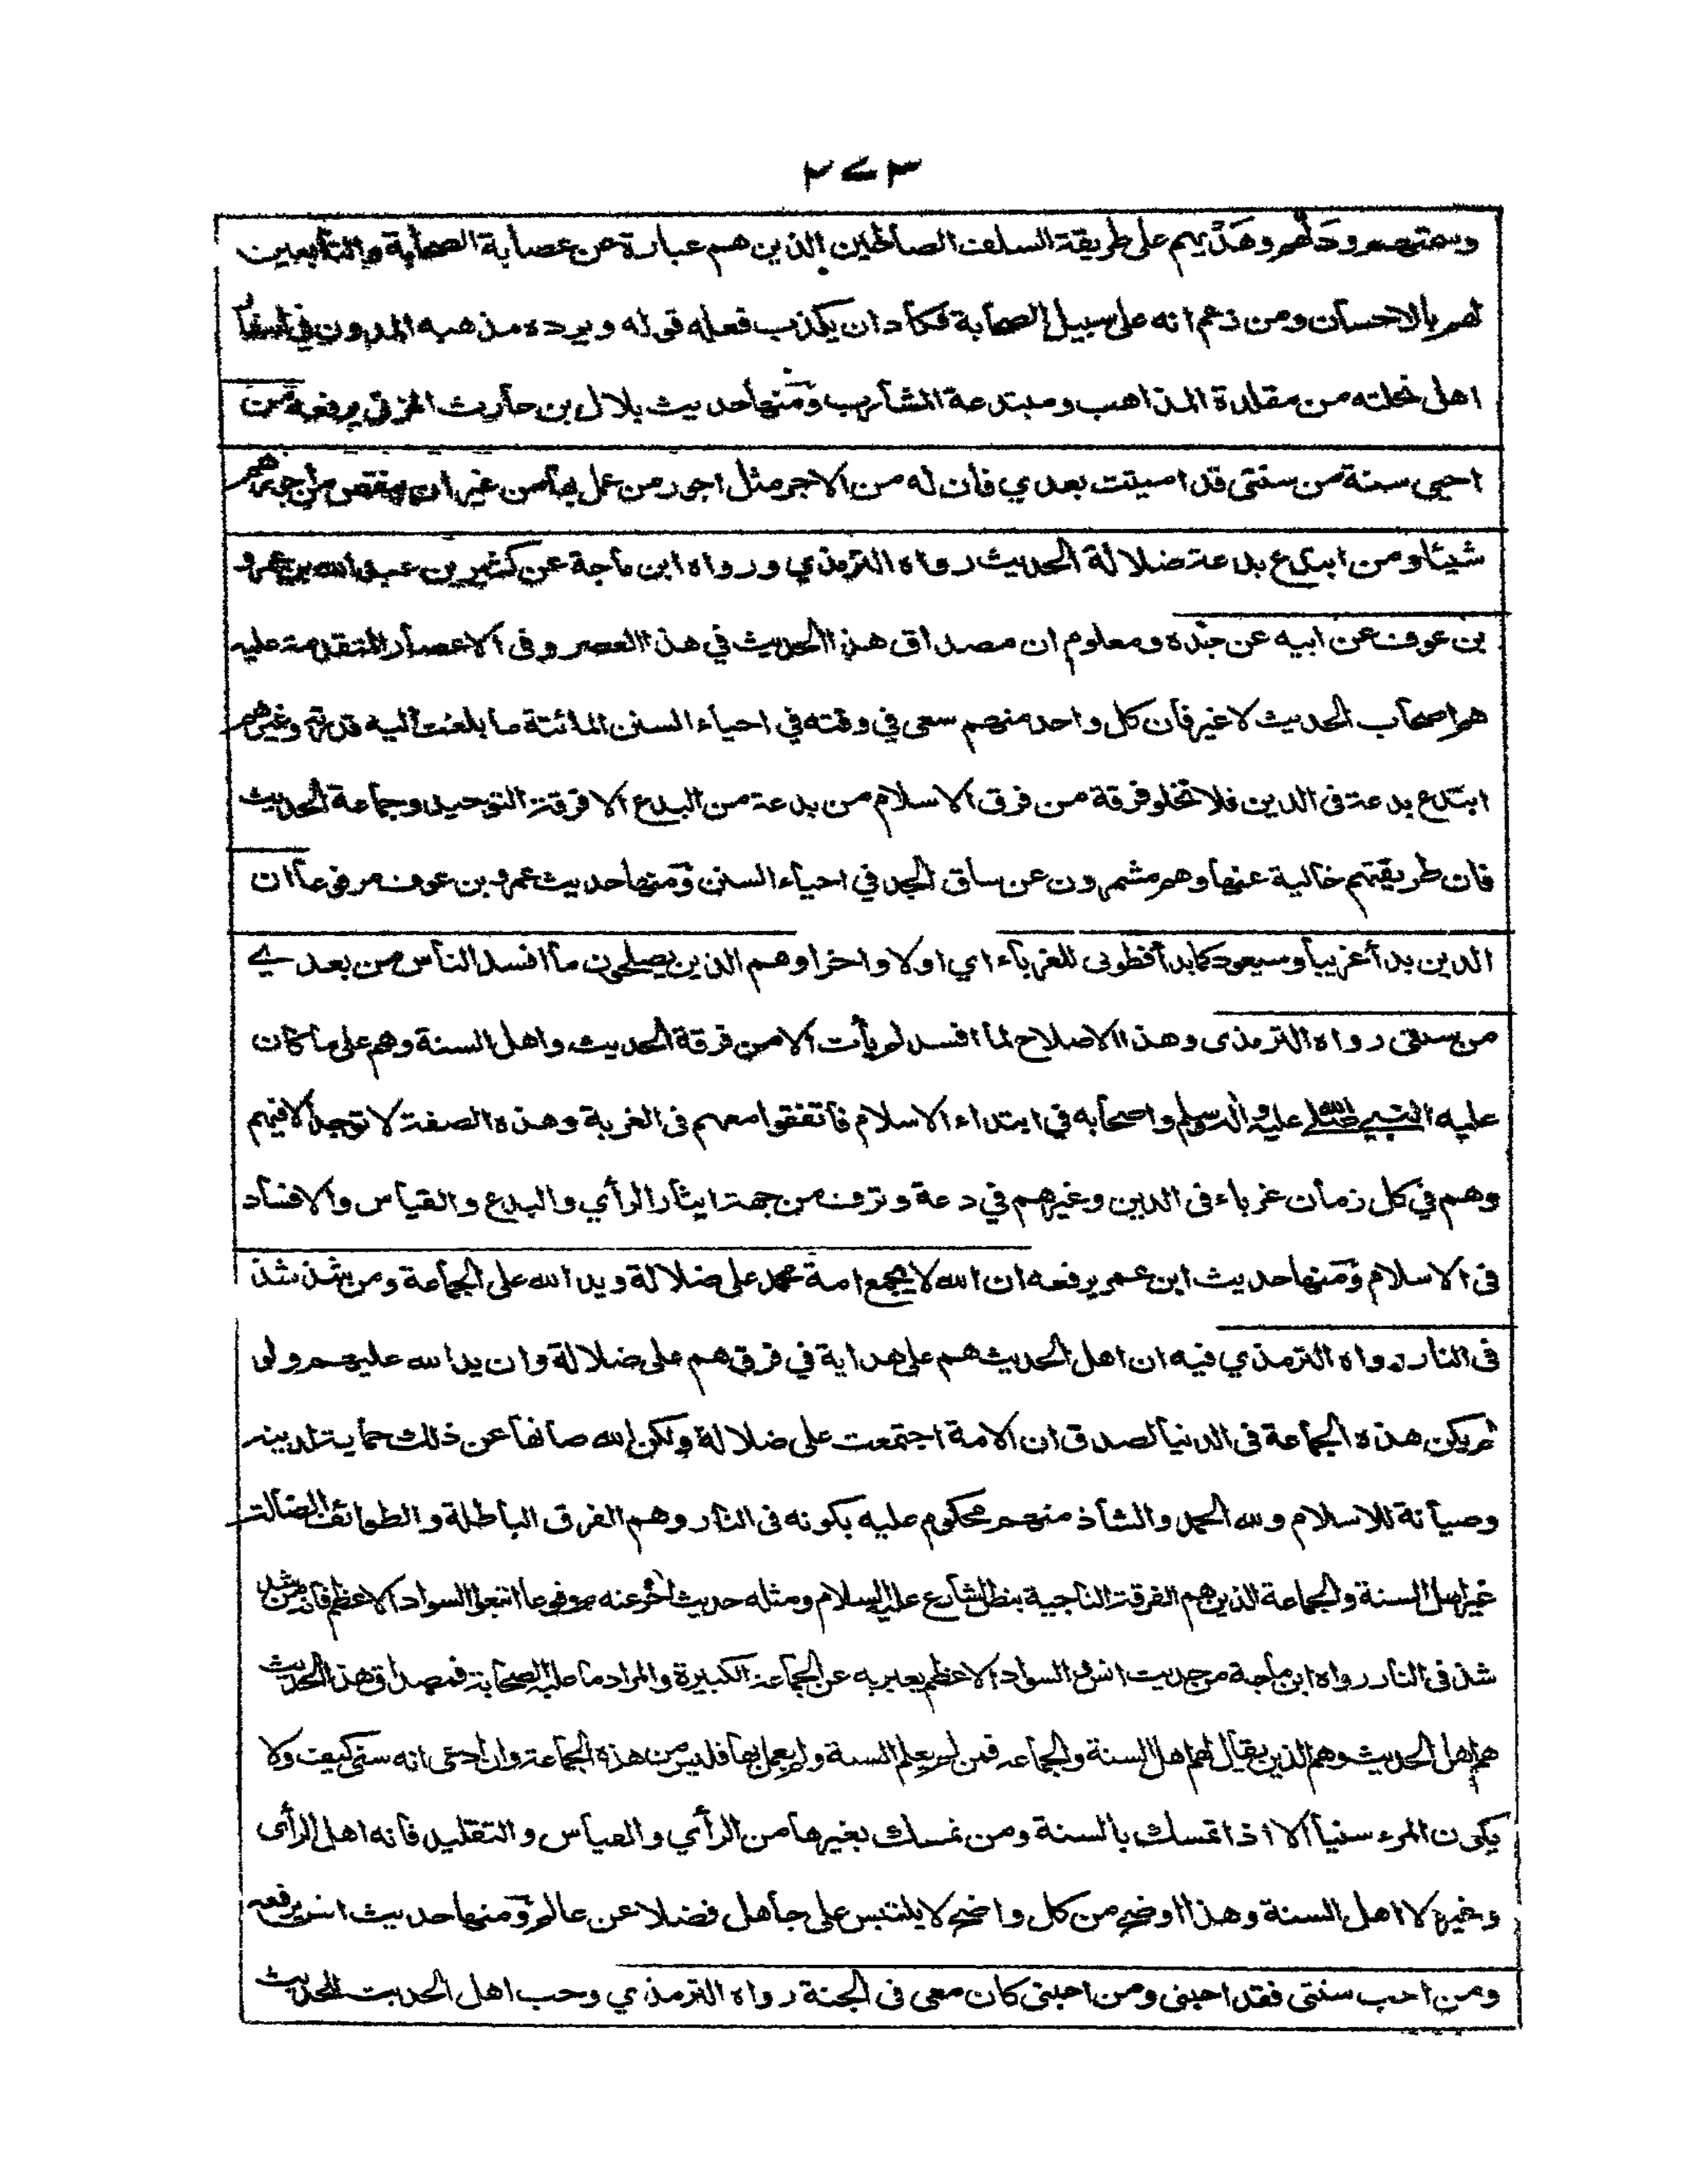 ٢٧٣
وسمتهم ودلهم وهديهم على طريقة السلف الصالحين الذين هم عبارة عن عصابة الصحابة والتابعين
لهم بالاحسان ومن زعم انه على سبيل الصحابة فكاد ان يكذب فعله قوله ويرده مذهبه المدون في اسفار
اهل نحلته من مقلدة المذاهب ومبتدعة المشارب ومنها حديث بلال بن حارث المزني يرفعه من
احيى سنة من سنتي قد اميتت بعدي فان له من الاجر مثل اجور من عمل بها من غير ان ينقص من اجورهم
شيئا ومن ابتدع بدعة ضلالة الحديث رواه الترمذي ورواه ابن ماجة عن كثير بن عبد الله بن عمرو
بن عوف عن ابيه عن جده ومعلوم ان مصداق هذا الحديث في هذا العصر وفى الاعصار المتقدمة عليه
هم اصحاب الحديث لا غير فان كل واحد منهم سعى في وقته في احياء السنن المائتة ما بلغت اليه قدرته وغيرهم
ابتدع بدعة فى الدين فلا تخلو فرقة من فرق الاسلام من بدعة من البدع الا فرقة التوحيد وجماعة الحديث
فان طريقتهم خالية عنها وهم مشمرون عن ساق الجد في احياء السنن ومنها حديث عمرو بن عوف مرفوعا ان
الدين بدأ غريبا وسيعود كما بدأ فطوبى للغرباء اي اولا واخرا وهم الذين يصلحون ما افسد الناس من بعدي
من سنتى رواه الترمذى وهذا الاصلاح لما افسد لم يأت الا من فرقة الحديث واهل السنة وهم على ما كان
عليه النبي صلى الله عليه واله وسلم واصحابه في ابتداء الاسلام فاتفقوا معهم فى الغربة وهذه الصفة لا توجد الا فيهم
وهم في كل زمان غرباء فى الدين وغيرهم في دعة وترف من جهة ايثار الرأي والبدع والقياس والافساد
فى الاسلام ومنها حديث ابن عمر يرفعه ان الله لا يجمع امة محمد على ضلالة ويد الله على الجماعة ومن شذ شذ
فى النار رواه الترمذي فيه ان اهل الحديث هم على هداية في فرق هم على ضلالة وان يد الله عليهم ولو
لم يكن هذه الجماعة فى الدنيا لصدق ان الامة اجتمعت على ضلالة ولكن الله صانها عن ذلك حماية لدينه
وصيانة للاسلام ولله الحمد والشاذ منهم محكوم عليه بكونه فى النار وهم الفرق الباطلة والطوائف الضالة
غير اهل السنة والجماعة الذين هم الفرقة الناجية بنظر الشارع عليه السلام ومثله حديث اخر عنه مرفوعا اتبعوا السواد الاعظم فانه من شذ
شذ فى النار رواه ابن ماجة من حديث انس السواد الاعظم يعبر به عن الجماعة الكبيرة والمراد ما عليه الصحابة فمصداق هذا الحديث
هم اهل الحديث وهم الذين يقال لهم اهل السنة والجماعة فمن لم يعلم السنة ولم يعمل بها فليس من هذه الجماعة وان ادعى انه سني كيف ولا
يكون المرء سنيا الا اذا تمسك بالسنة ومن تمسك بغيرها من الرأي والقياس والتقليد فانه اهل الرأى
وغيره لا اهل السنة وهذا اوضح من كل واضح لا يلتبس على جاهل فضلا عن عالم ومنها حديث انس يرفعه
ومن احب سنتى فقد احبنى ومن احبنى كان معى فى الجنة رواه الترمذي وحب اهل الحديث للحديث